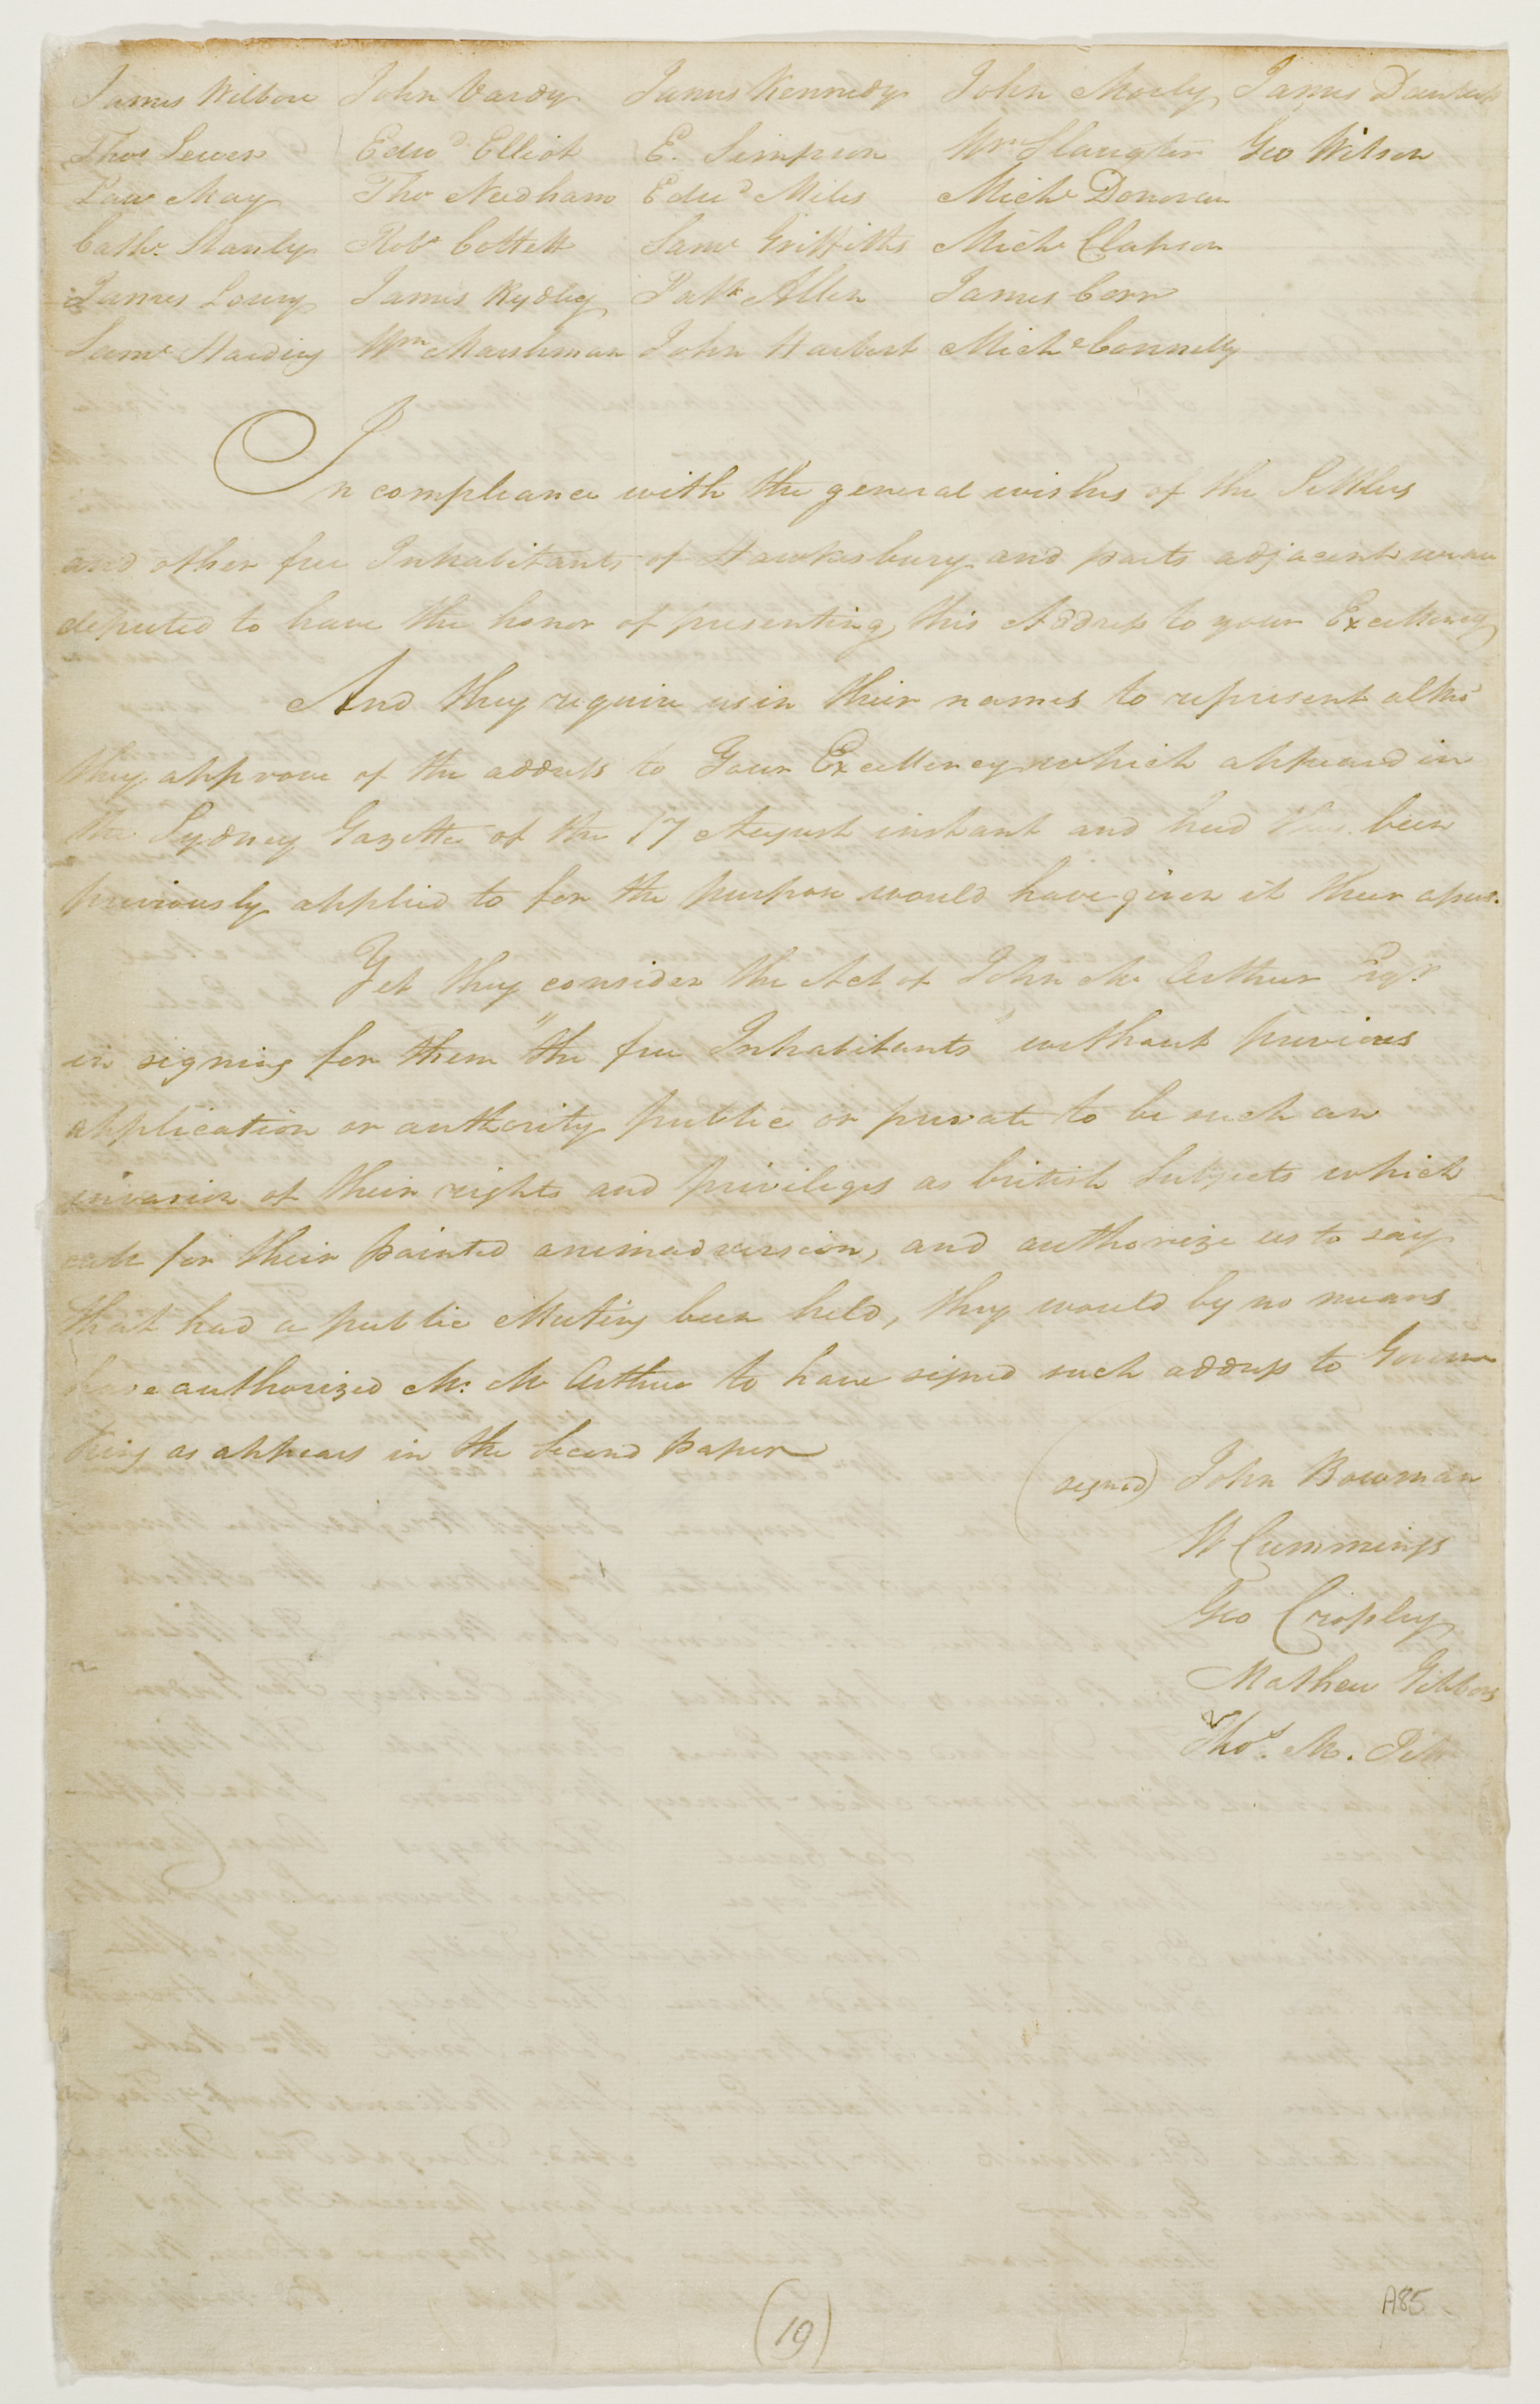 James Wilbore John Vardy James Kennedy John Morly James Dawson
Thos Lewer Edwd Elliot E. Simpson Wm Slaughter Geo Wilson
Law May Tho Needham Edwd Miles Michl Donovan
Cathe. Stanly Robt Cottett Saml Griffiths Michl Clapson
James Loury James Rydley Patk Allen James Corr
Saml Harding Wm Marshman John Harbert Michl Connelly
In compliance with the general wishes of the Settlers
and other free Inhabitants of Hawksbury and parts adjacent we are
deputed to have the honor of presenting this Address to your Excellency
And they require us in their names to represent altho'
they approve of the address to Your Excellency which appeard in
the Sydney Gazette of the 17 August instant and had been
previously applied to for the purpose would have given it their
Yet they consider the Act of John Mc Arthur Esqr.
in signing for them "the free Inhabitants" without previous
application or authority public or private to be such an
invasion of their rights and privileges as british Subjects which
call for their pointed animadversion, and authorize us to say
that had a public Meeting been held, they would by no means
have authorized Mr. Mc Arthur to have signed such address to Governor
King as appears in the Second paper
(signed) John Bowman
W Cummings
Geo Crosley
Mathew Gibbons
Thos. M. Pitt
(19)
A85